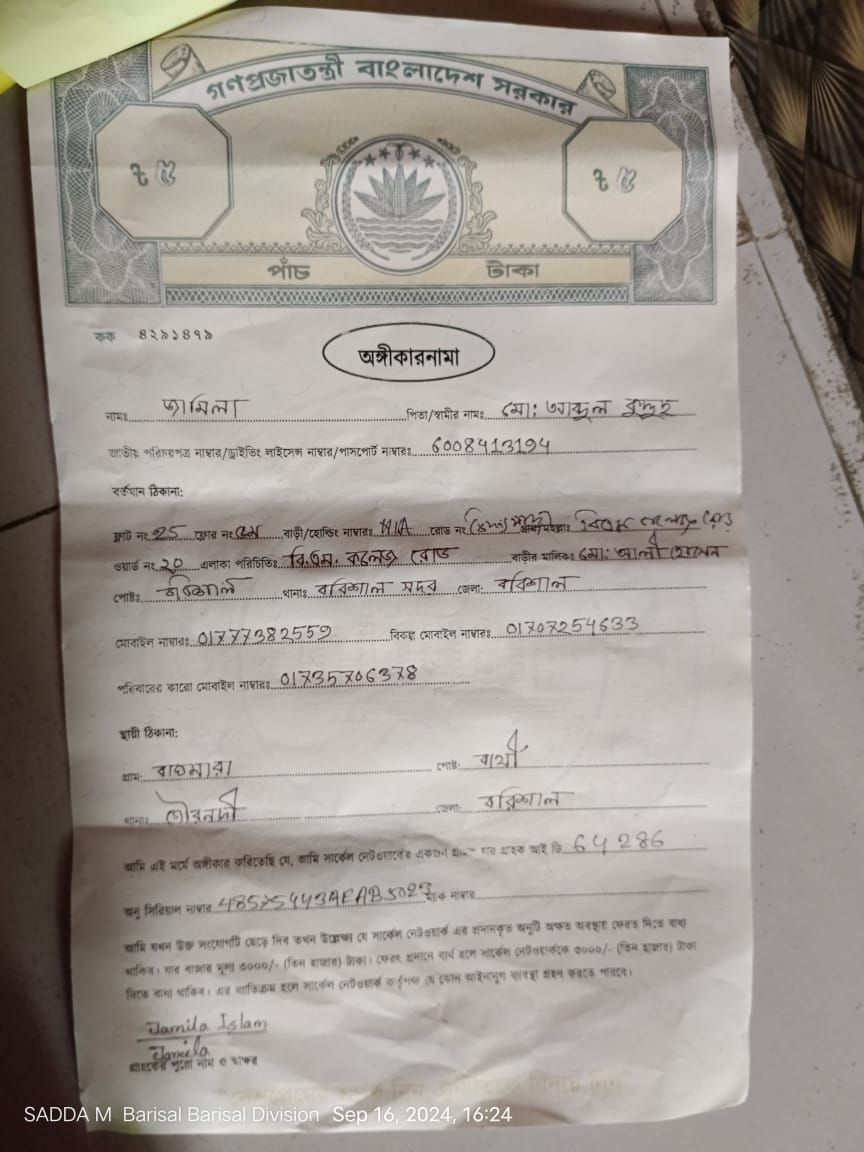 গণপ্রজাতন্ত্রী বাংলাদেশ সরকার
৳ ৫ ৳ ৫
পাঁচ টাকা
কক ৪২৯১৪৭৯
অঙ্গীকারনামা
নামঃ জামিলা পিতা/স্বামীর নামঃ মো: আব্দুল কুদ্দুছ
জাতীয় পরিচয়পত্র নাম্বার/ড্রাইভিং লাইসেন্স নাম্বার/পাসপোর্ট নাম্বারঃ 6008413194
বর্তমান ঠিকানা:
ফ্লাট নং 25 ফ্লোর নং ৫ম বাড়ী/হোল্ডিং নাম্বারঃ N/A রোড নং
ওয়ার্ড নং 20 এলাকা পরিচিতিঃ বি.এম. কলেজ রোড বাড়ীর মালিকঃ মো: আলী হোসেন
পোষ্টঃ বরিশাল থানাঃ বরিশাল সদর জেলা: বরিশাল
মোবাইল নাম্বারঃ 01777382559 বিকল্প মোবাইল নাম্বারঃ 01707254633
পরিবারের কারো মোবাইল নাম্বারঃ 01735706378
স্থায়ী ঠিকানা:
গ্রাম: বাটাজোর পোষ্ট: বার্থী
থানাঃ গৌরনদী জেলা: বরিশাল
আমি এই মর্মে অঙ্গীকার করিতেছি যে, আমি সার্কেল নেটওয়ার্কের একজন গ্রাহক যার গ্রাহক আই ডি 64286
অনু সিরিয়াল নাম্বার 48575443AEAB5023 ম্যাক নাম্বার
আমি যখন উক্ত সংযোগটি ছেড়ে দিব তখন উল্লেখ্য যে সার্কেল নেটওয়ার্ক এর প্রদানকৃত অনুটি অক্ষত অবস্থায় ফেরত দিতে বাধ্য
থাকিব। যার বাজার মূল্য ৩০০০/- (তিন হাজার) টাকা। ফেরৎ প্রদানে ব্যর্থ হলে সার্কেল নেটওয়ার্ককে ৩০০০/- (তিন হাজার) টাকা
দিতে বাধ্য থাকিব। এর ব্যতিক্রম হলে সার্কেল নেটওয়ার্ক কর্তৃপক্ষ যে কোন আইনানুগ ব্যবস্থা গ্রহন করতে পারবে।
Jamila Islam
Jamila
গ্রাহকের পুরো নাম ও স্বাক্ষর
SADDA M Barisal Barisal Division Sep 16, 2024, 16:24